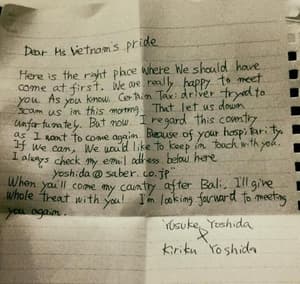 Dear Ms Vietnam's pride
Here is the right place where We should have
come at first. We are really happy to meet
you. As you know, Certain Taxi driver tryed to
scam us in this morning. That let us down
unfortunately. But now, I regard this country
as I want to come again. Because of your hospitarity.
If we can, We would like to keep in touch with you.
I always check my email adress below here
yoshida@saber.co.jp"
When you'll come my country after Bali, I'll give
whole treat with you! I'm looking forward to meeting
you again.
Yosuke Yoshida
Kiriku Yoshida